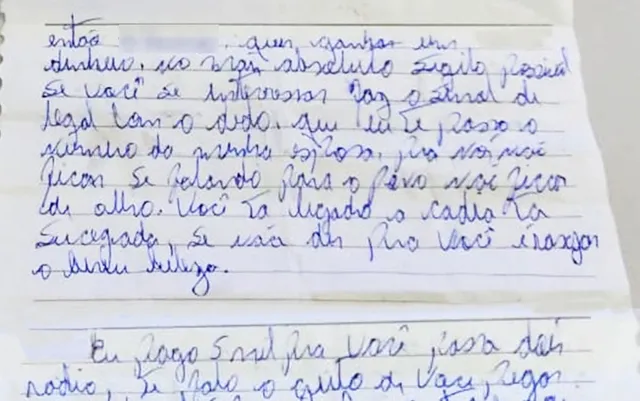 então , quer ganhar um
dinheiro, no mais absoluto sigilo possível
se você se interessar faz o sinal de
legal com o dedo, que eu te passo o
número da minha esposa, pra nós não
ficar se falando para o povo não ficar
de olho. Você ta ligado a cadeia ta
sucegada, se não der pra você trazer
o meu beleza.
Eu pago 5 mil pra você passa dois
radio, te falo o jeito di você pegar